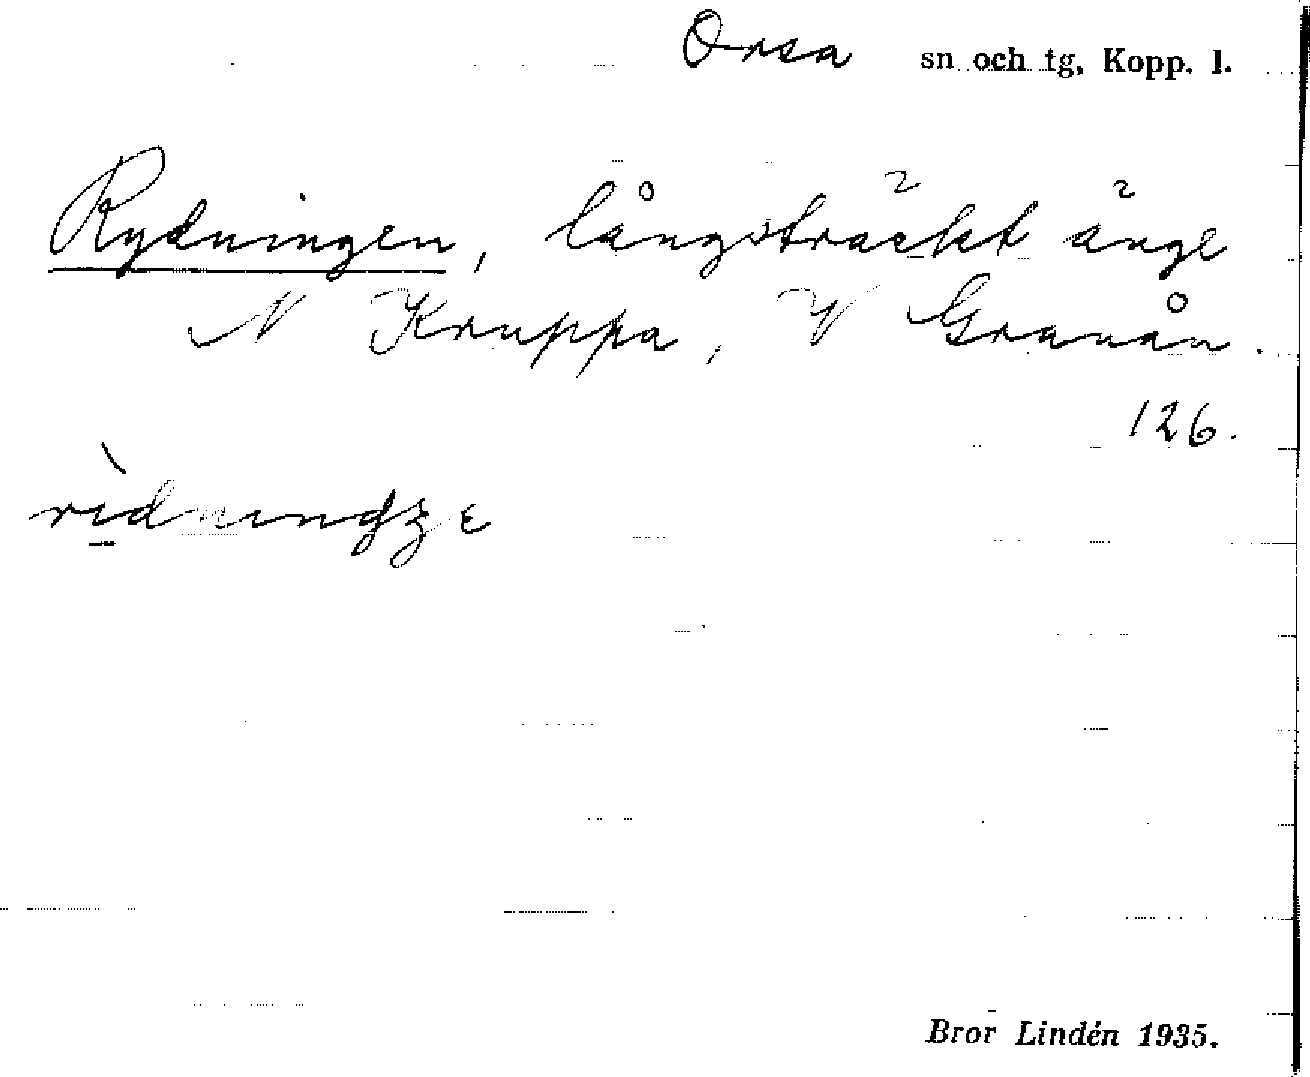 Orsa sn och tg, Kopp. l.
Rydningen, långsträckt änge
N Kruppa, V Granån.
126.
Bror Lindén 1935.